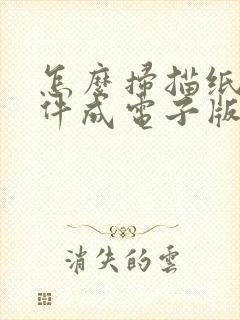 怎麼掃描纸
件成電子版
消失的雲